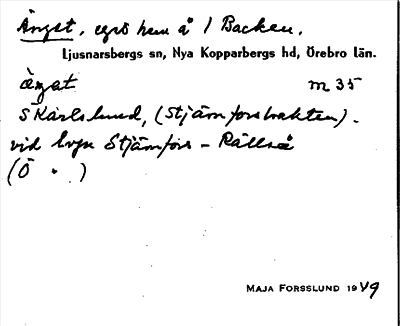 Ängst, egrö hem å / Backen.
Ljusnarsbergs sn, Nya Kopparbergs hd, Örebro län.
ängat m 35
S Karlslund, (Stjärnforstrakten).
vid lvgn Stjärnfors - Rällså
(Ö . )
MAJA FORSSLUND 1949